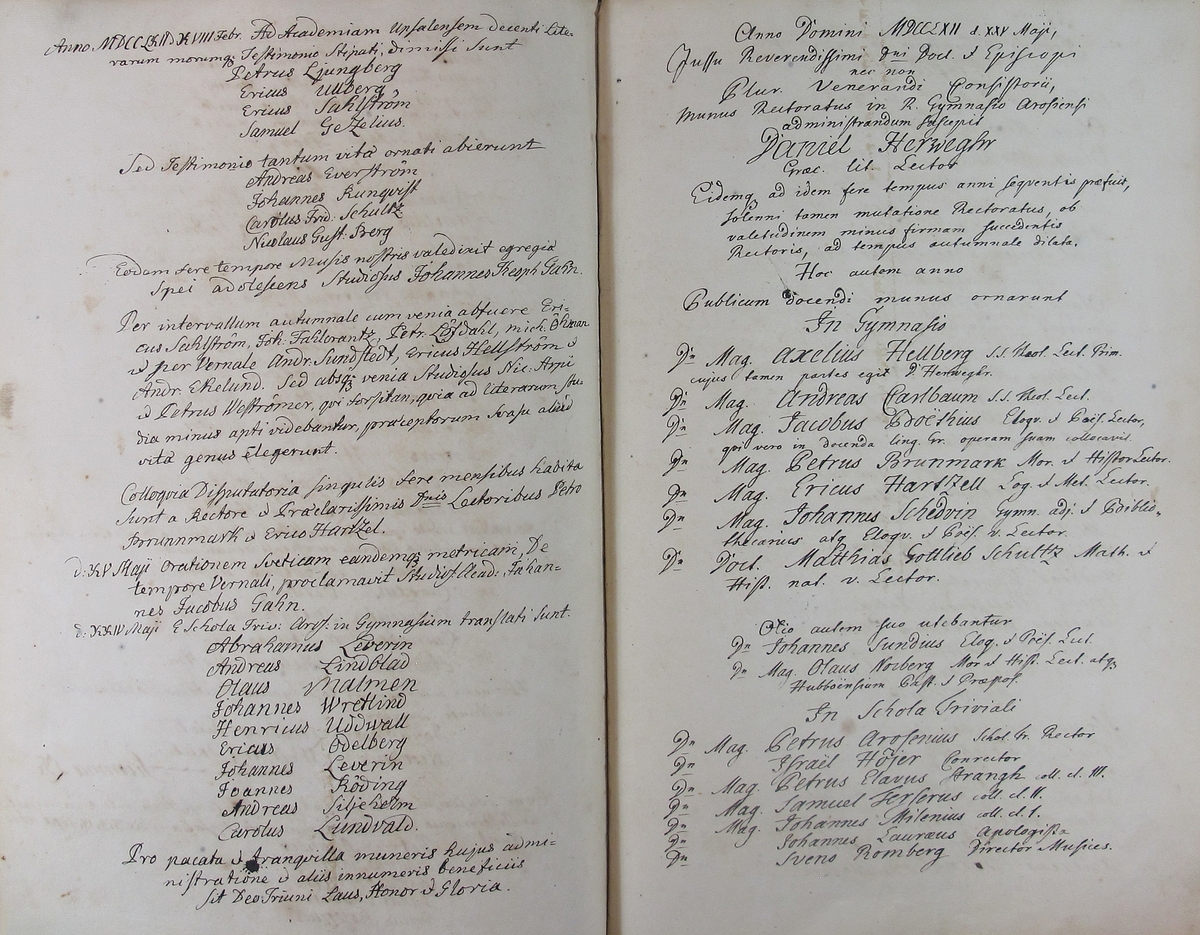 Anno MDCCLXII d. XVIII Febr. Ad Academiam Upsalensem decenti Lite-
rarum morumq; Testimonio stipati, dimissi sunt
Petrus Ljungberg
Ericus Ullberg,
Ericus Sahlström
Samuel Gezelius.
Sed Testimonio tantum vitæ ornati abierunt
Andreas Everström
Johannes Runqvist
Carolus Frid. Schultz
Nicolaus Gust. Berg
Eodam fere tempore Musis nostris valedixit egregiæ
Spei adolescens Studiosus Johannes Theoph Gahn.
Per intervallum autumnale cum venia abfuere Eri-
cus Sahlström, Joh. Fahlcrantz, Petr. Löfdahl, Mich. Öhman
& per Vernale Andr. Sundstedt, Ericus Hellström &
Andr. Ekelund. Sed absq; venia Studiosus Nic. Arpii
& Petrus Weströmer, qvi forsitan, qvia ad literarum stu-
dia minus apti videbantur, præceptorum svasu aliud
vitæ genus elegerunt.
Colloqvia Disputatoria singulis fere mensibus habita
sunt a Rectore & Præclarissimis Dnis Lectoribus Petro
Brunnmark & Erico Hartzel.
d: XV Maji orationem Sveticam eandemq; metricam, De
tempore Vernali, proclamavit Studios. Clead: Johan-
nes Jacobus Gahn.
d: XXIV Maji E Schola Triv: Aros. in Gymnasium translati sunt.
Abrahamus Leverin
Andreas Lindblad
Olaus Malmen
Johannes Wretlind
Henricus Uddwall
Ericus Odelberg
Johannes Leverin
Joannes Röding
Andreas Siljeholm
Carolus Lundvald.
Pro pacata & tranqvilla muneris hujus admi-
nistratione & aliis innumeris beneficiis
sit Deo Triuni Laus, Honor & Gloria.
Anno Domini MDCCLXII d. XXV Maji,
Jussu Reverendissimi Dni Doct. & Episcopi
nec non
Plur. Venerandi Consistorii,
munus Rectoratus in R. Gymnasio Arosiensi
administrandum suscepit
Daniel Herweghr
Græc. lit. Lector
Eidemq; ad idem fere tempus anni seqventis præfuit,
solenni tamen mutatione Rectoratus, ob
valetudinem minus firmam succedentis
Rectoris, ad tempus autumnale dilata.
Hoc autem anno
Publicum docendi munus ornarunt
In Gymnasio
Dn Mag. Axelius Hellberg S.S. Theol. Lect. Prim.
cujus tamen partes egit D. Herweghr.
Dn Mag. Andreas Carlbaum S.S. Theol. Lect.
Dn Mag. Jacobus Boëthius Eloqv. & Poës. Lector,
qvi vero in docenda ling. Gr. operam suam collocavit.
Dn Mag. Petrus Brunmark Mor. & Histor Lector.
Dn Mag. Ericus Hartzell Log. & Met. Lector.
Dn Mag. Johannes Schedvin Gymn. adj. & Biblio-
thecarius atq; Eloqv. & Poës. v. Lector.
Dn Doct. Matthias Gottlieb Schultz Math. &
Hist. nat. v. Lector.
Otio autem suo utebantur
Dn Johannes Sundius Eloq. & Poës. Lect.
Dn Mag. Olaus Norberg Mor. & Hist. Lect. atq;
Hubboënsium Past. & Præpos.
In Schola Triviali
Dn Mag. Petrus Arosenius Schol. tr. Rector
Dn Israel Höjer Conrector
Dn Mag. Petrus Elavus Strangh coll. cl. III.
Dn Mag. Samuel Ferserus coll. cl. II.
Dn Mag. Johannes Milenius coll. cl. I.
Dn Johannes Lauræus Apologista
Dn Sveno Romberg Director Musices.